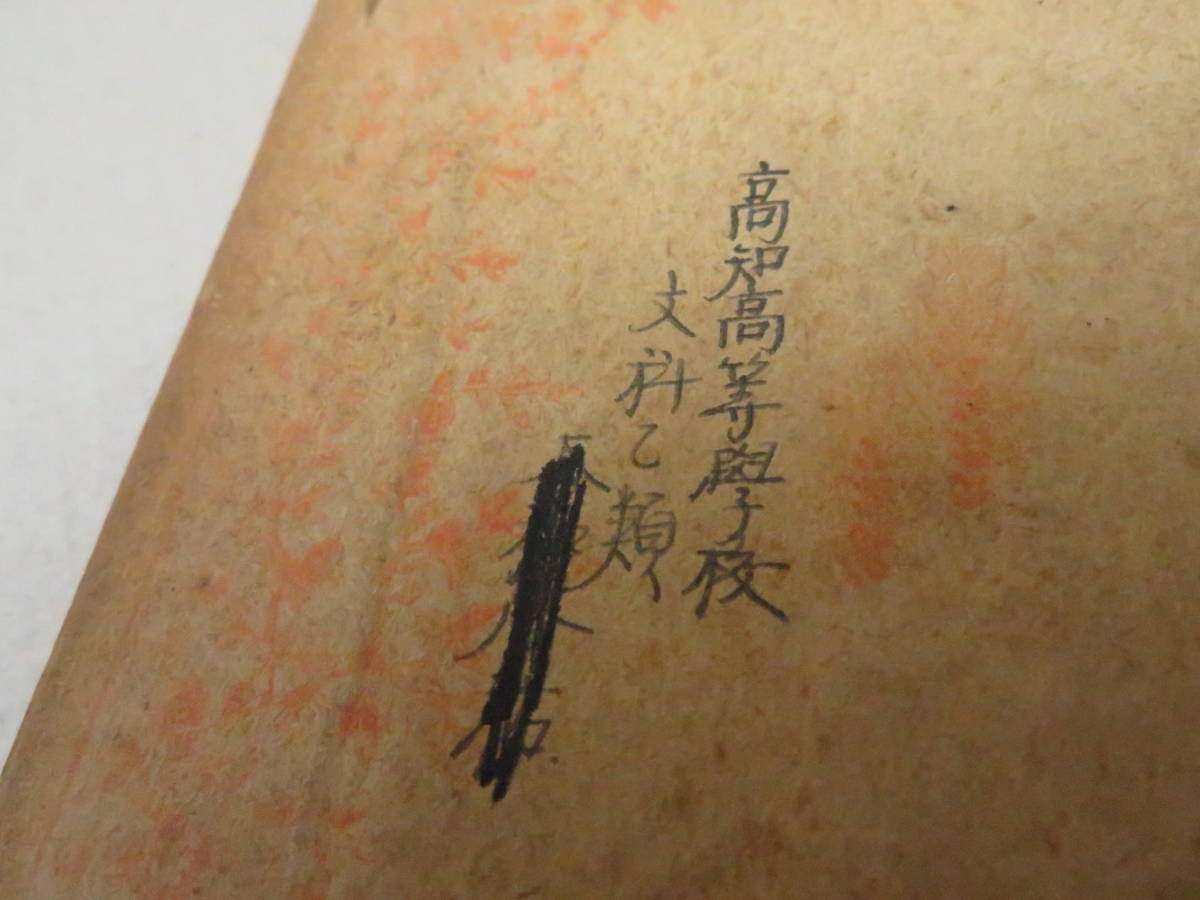 高知高等學校
文科乙類